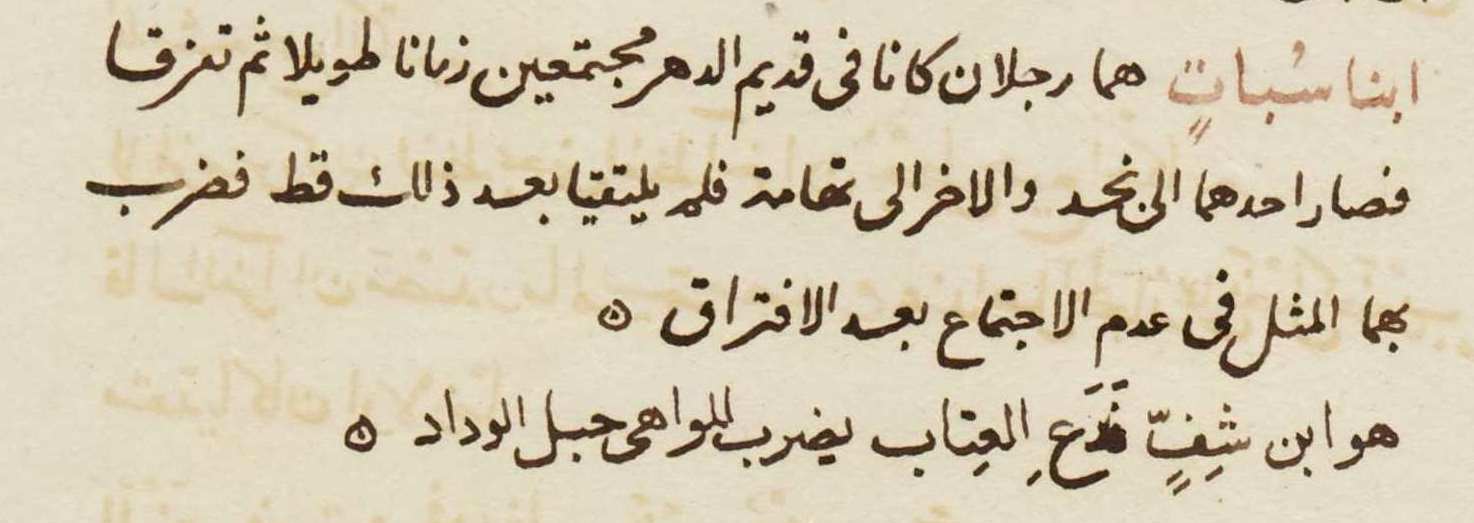 ابنا سُباتٍ هما رجلان كانا فى قديم الدهر مجتمعين زمانا طويلا ثم تفرقا
فصار احدهما الى نجد والاخر الى تهامة فلم يلتقيا بعد ذلك قط فضرب
بهما المثل فى عدم الاجتماع بعد الافتراق ه
هو ابن شِفٍّ فَدَعِ العِتاب يضرب للواهى حبل الوداد ه